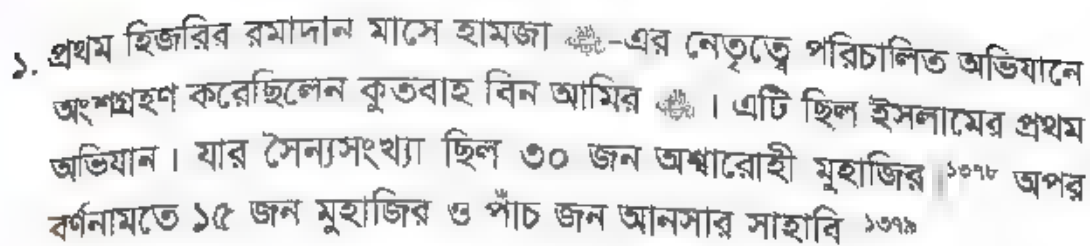 ১. প্রথম হিজরির রমাদান মাসে হামজা ﷺ-এর নেতৃত্বে পরিচালিত অভিযানে
অংশগ্রহণ করেছিলেন কুতবাহ বিন আমির ﷺ । এটি ছিল ইসলামের প্রথম
অভিযান। যার সৈন্যসংখ্যা ছিল ৩০ জন অশ্বারোহী মুহাজির ১৩৭৮ অপর
বর্ণনামতে ১৫ জন মুহাজির ও পাঁচ জন আনসার সাহাবি ১৩৭৯